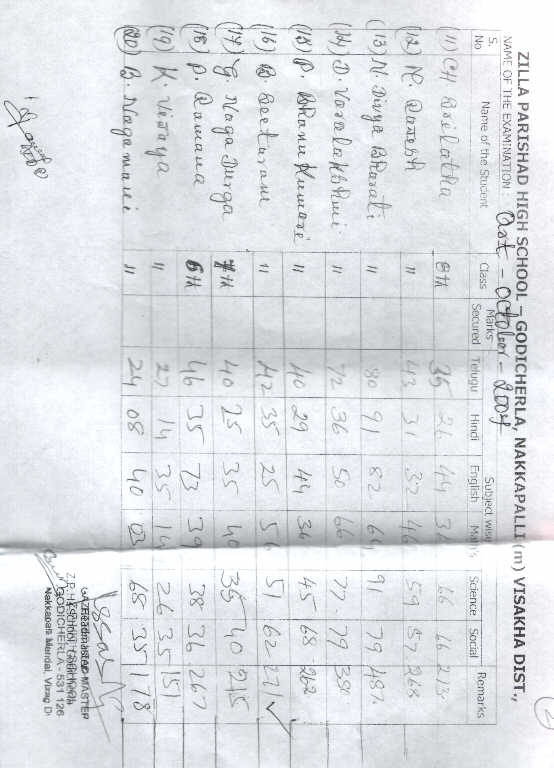 ZILLA PARISHAD HIGH SCHOOL – GODICHERLA, NAKKAPALLI (m) VISAKHA DIST.,
NAME OF THE EXAMINATION : October - 2004
S. No Name of the Student Class Marks Secured Subject wise Telugu Hindi English Maths Science Social Remarks
(11) CH Srilatha 8th 35 26 44 66 66
(12) M. Ramesh " 43 31 32 46 59 57 268
(13) N. Divya Bharati " 80 91 82 64 91 79 487
(14) D. Varalakshmi " 72 36 50 66 77 79 380
(15) P. Bhanu Kumari " 40 29 44 36 45 68 262
(16) B Seeturam " 42 35 25 56 51 62 271
(17) G. Naga Durga 7th 40 25 35 40 35 40 215
(18) P. Ramana 6th 46 35 73 39 38 36 267
(19) K. Vijaya " 27 14 35 14 26 35 151
(20) B. Nagamani " 24 08 40 03 68 35 178
GODICHERLA - 531 126
Nakkapalli Mandal, Vizag Dt